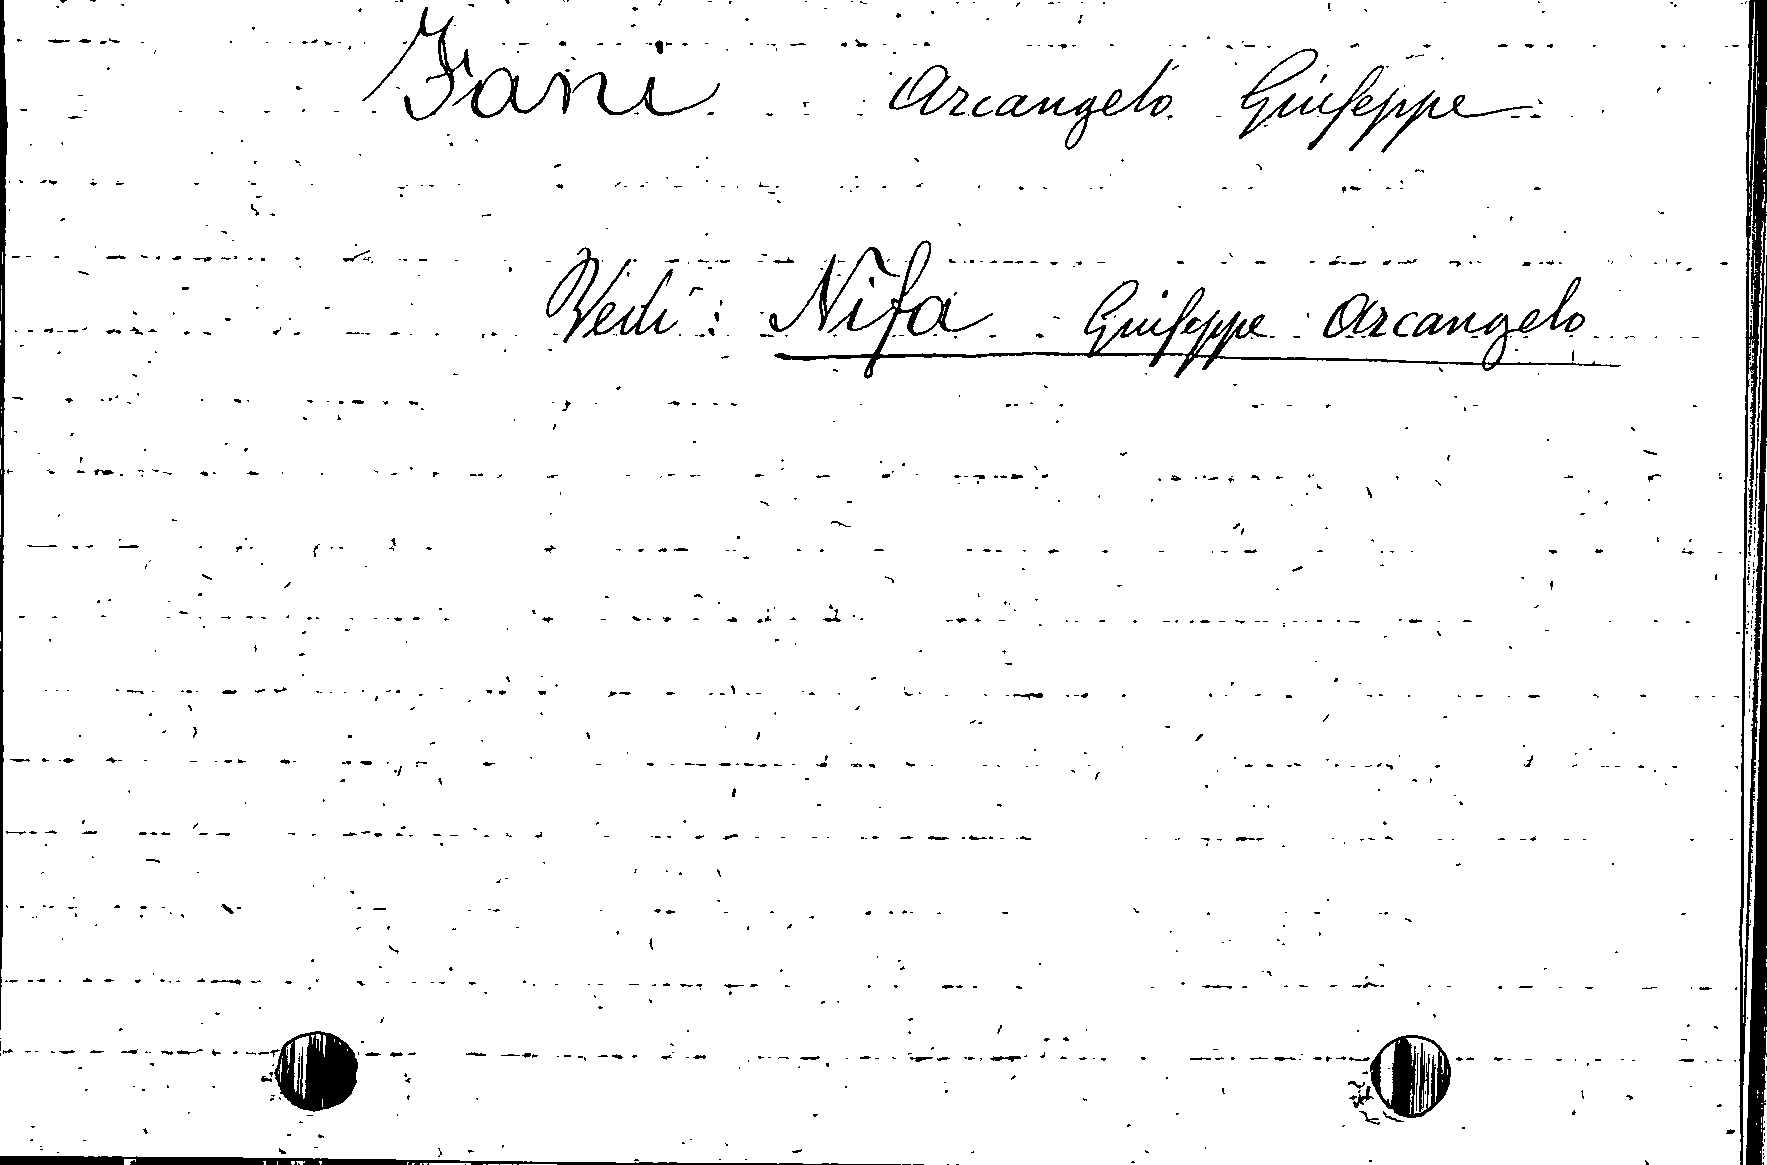 Fani Arcangelo Giuseppe
Vedi: Nifa Giuseppe Arcangelo